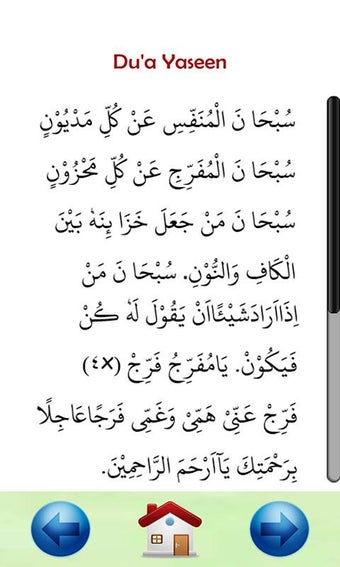 Du'a Yaseen
سُبْحَا نَ الْمُنَفِّسِ عَنْ كُلِّ مَدْيُوْنٍ
سُبْحَا نَ الْمُفَرِّجِ عَنْ كُلِّ مَحْزُوْنٍ
سُبْحَا نَ مَنْ جَعَلَ خَزَا ئِنَهٗ بَيْنَ
الْكَافِ وَالنُّوْنِ. سُبْحَا نَ مَنْ
اِذَااَرَادَشَيْئًااَنْ يَقُوْلَ لَهٗ كُنْ
فَيَكُوْنْ. يَامُفَرِّجُ فَرِّجْ (٤x)
فَرِّجْ عَنِّىْ هَمِّىْ وَغَمِّى فَرَجًاعَاجِلًا
بِرَحْمَتِكَ يَآاَرْحَمَ الرَّاحِمِيْنَ.